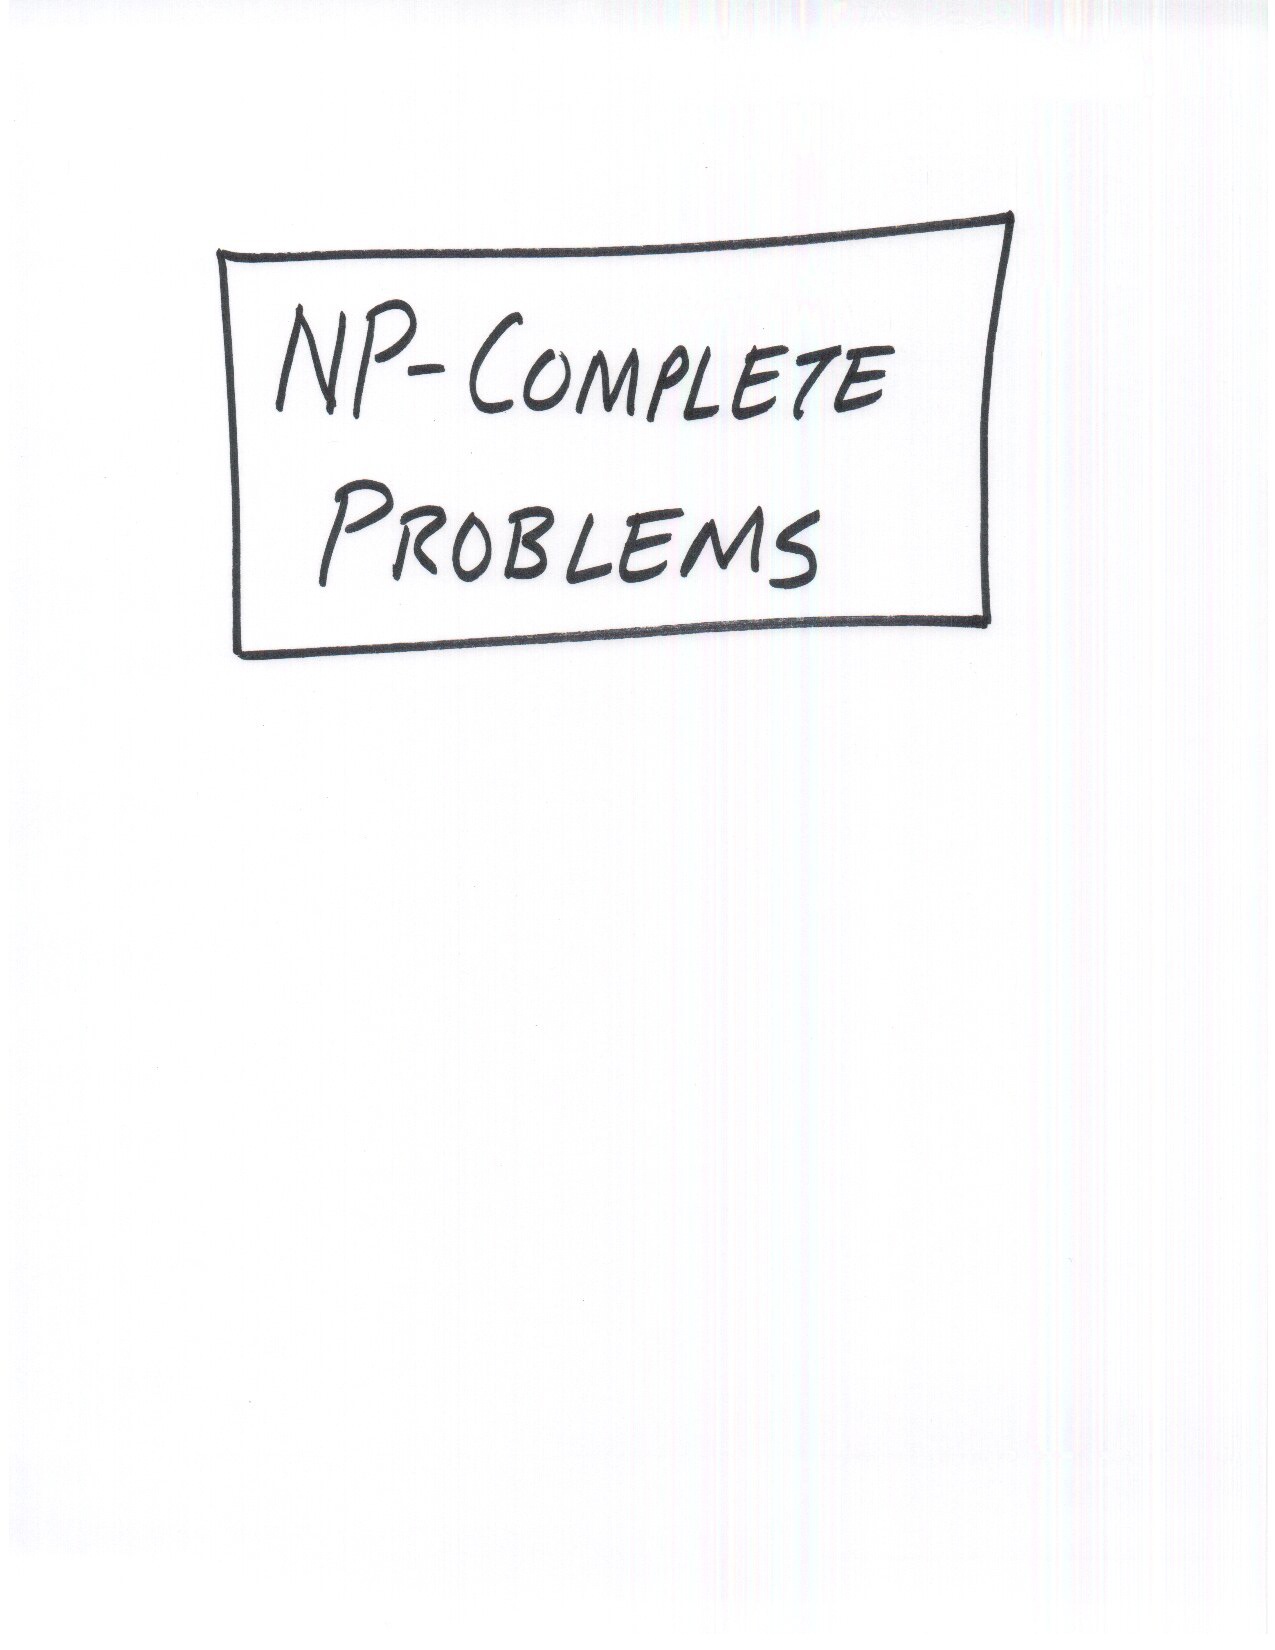 NP-COMPLETE
PROBLEMS